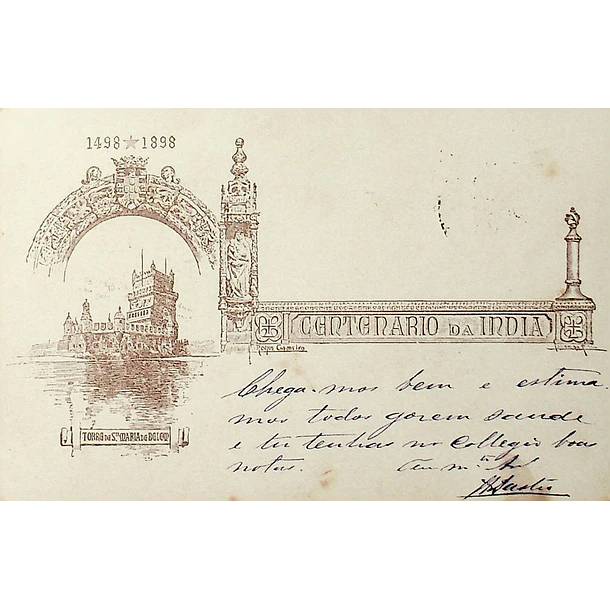 1498 ★ 1898
CENTENARIO DA INDIA
Roque Gameiro
TORRE DE S.TA MARIA DE BELEM
Chega-mos bem e estima
mos todos gozem saude
e tu tenhas no collegio boas
notas.